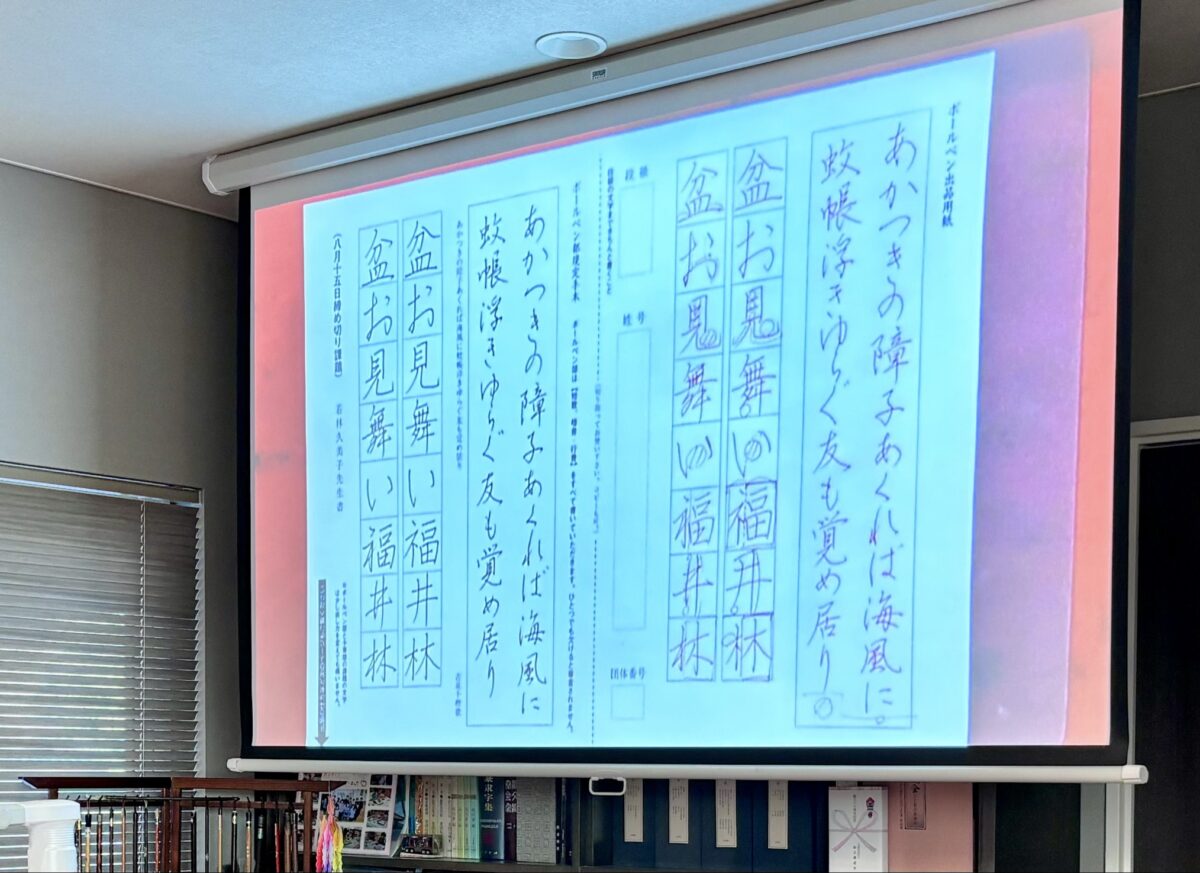 ボールペン出品用紙
あかつきの障子あくれば海風に
蚊帳浮きゆらぐ友も覚め居り
盆お見舞い福井林
盆お見舞い福井林
段級
姓号
団体番号
目標の文字まできちんと書くこと
ボールペン部規定手本
ボールペン部は【楷書、行書】をすべて書いていただきます。ひとつでも欠けると審査されません。
あかつきの障子あくれば海風に
蚊帳浮きゆらぐ友も覚め居り
あかつきの障子あくれば海風に蚊帳浮きゆらぐ友も覚め居り
盆お見舞い福井林
盆お見舞い福井林
（八月十五日締め切り課題）
若林久美子先生書